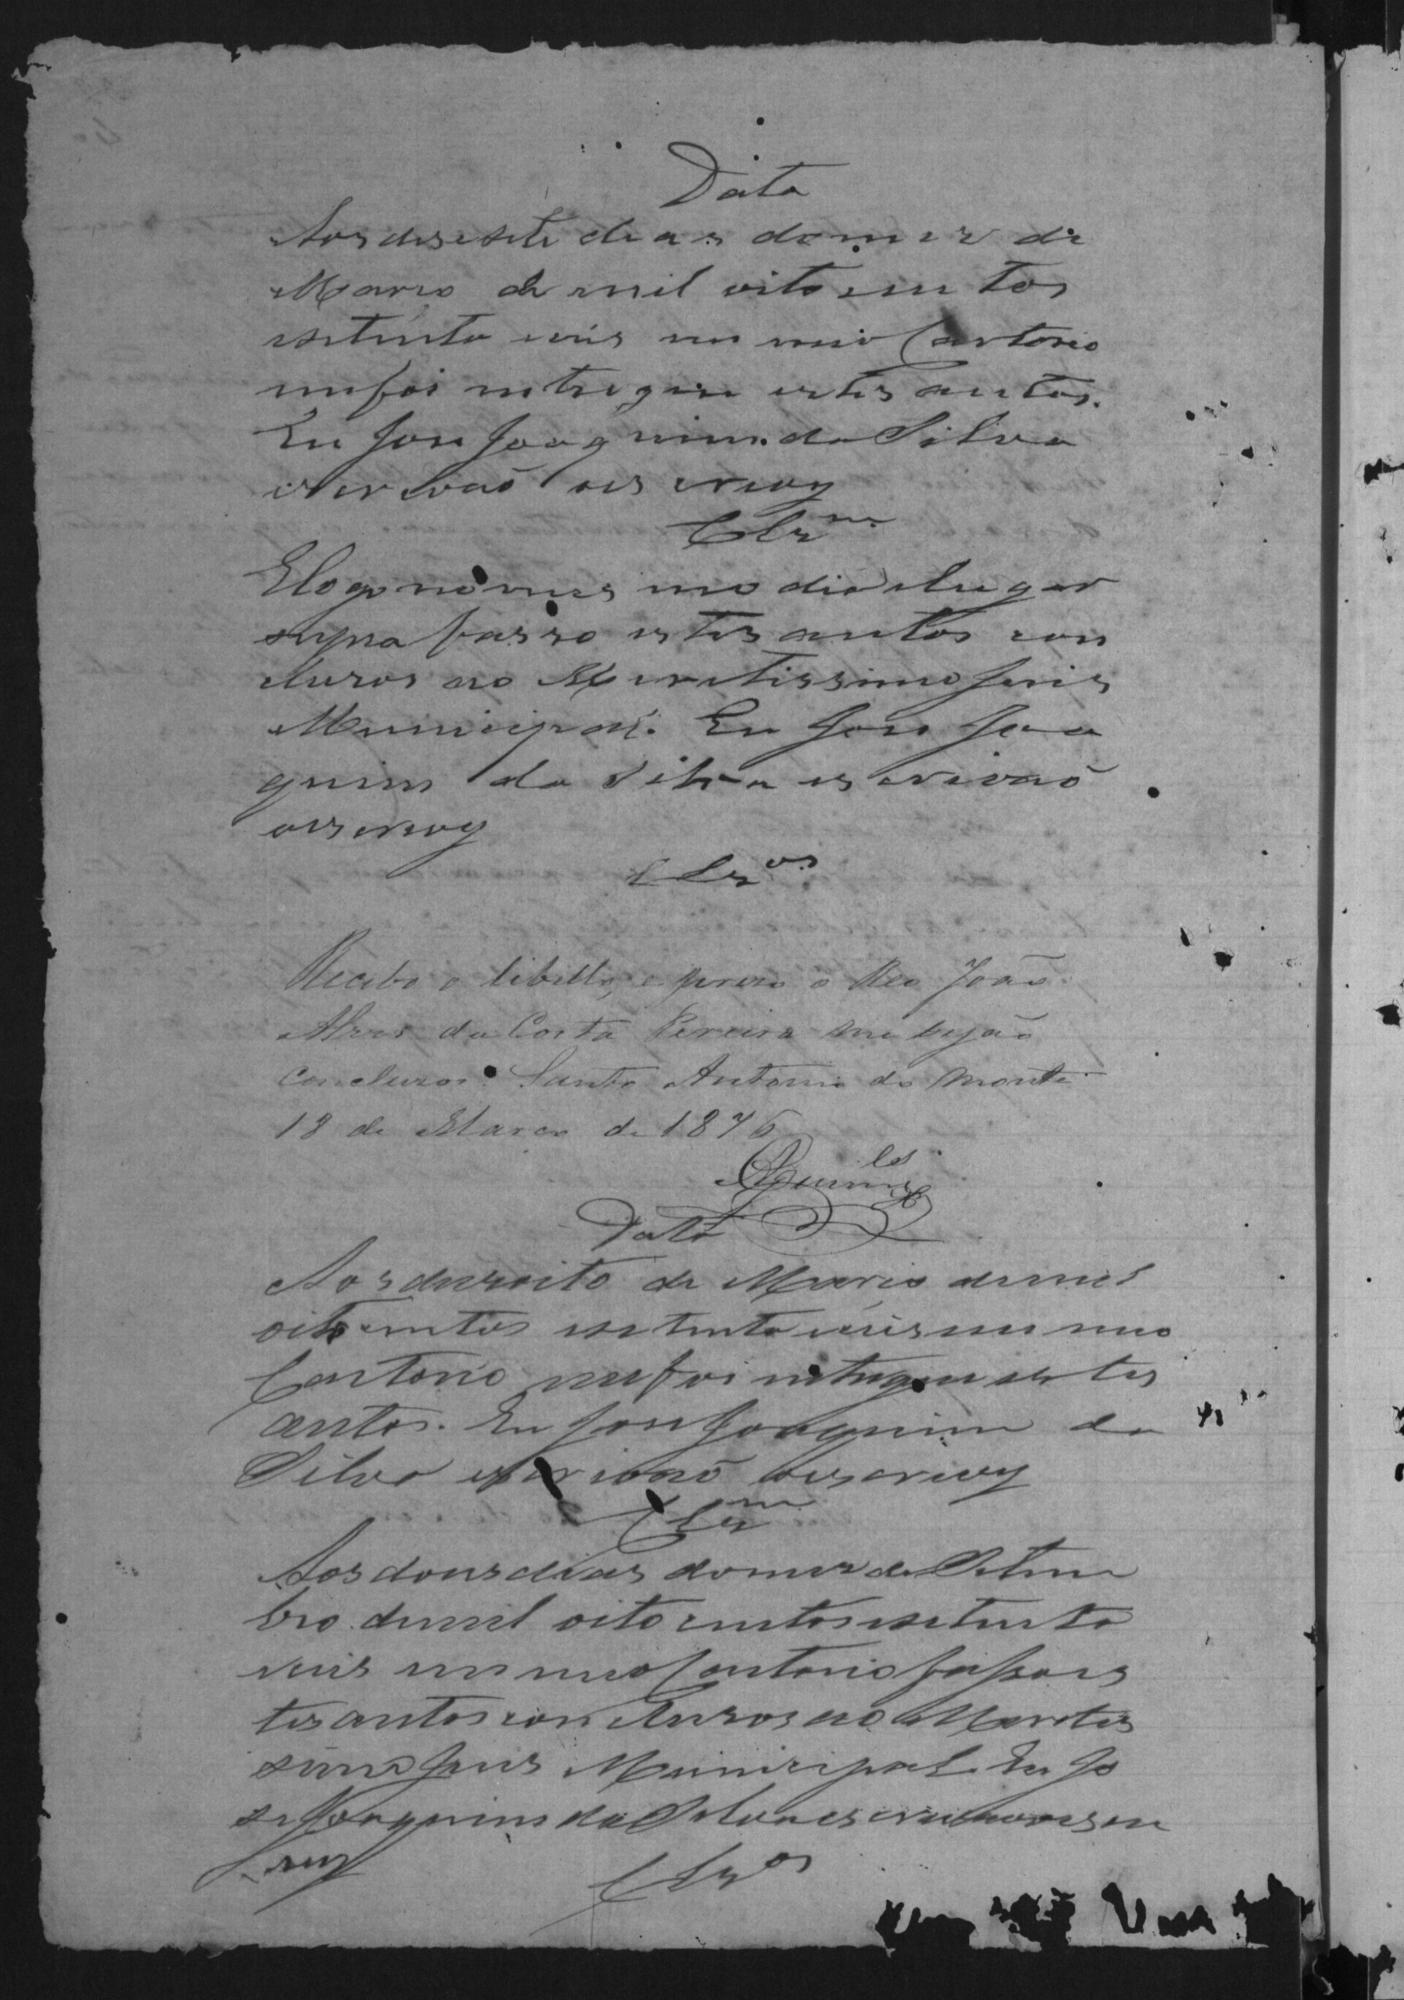 Data
Aos desesete dias do mez de
Março de mil oito sentos
esetenta eseis em meo Cartorio
me foi entregue estes autos.
Eu Jose Joaquim da Silva
escrivaõ oescrevy
Clzm
E logo no mes mo dia elugar
supra fasso estes autos con
cluzos ao Meretissimo Juis
Municipal. Eu Jose Joa
quim da Silva escrivaõ
oescrevy
Clzos
Recebo o libello, e preso o Reo João
Alves da Costa Pereira me sejão
concluzos. Santo Antonio do Monte
18 de Março de 1876
Data
Aos desoito de Março demil
oitosentos esetenta eseis em meo
Cartorio me foi entregue estes
autos. Eu Jose Joaquim da
Silva escrivaõ oescrevy
Clzm
Aos dous dias do mez de Setem
bro demil oito sentos esetenta
eseis em meo Cartorio fasso es
tes autos con cluzos ao Meretis
simo Juis Municipal Eu Jo
se Joaquim da Silva escrivaõ oescre
vy
Clzos